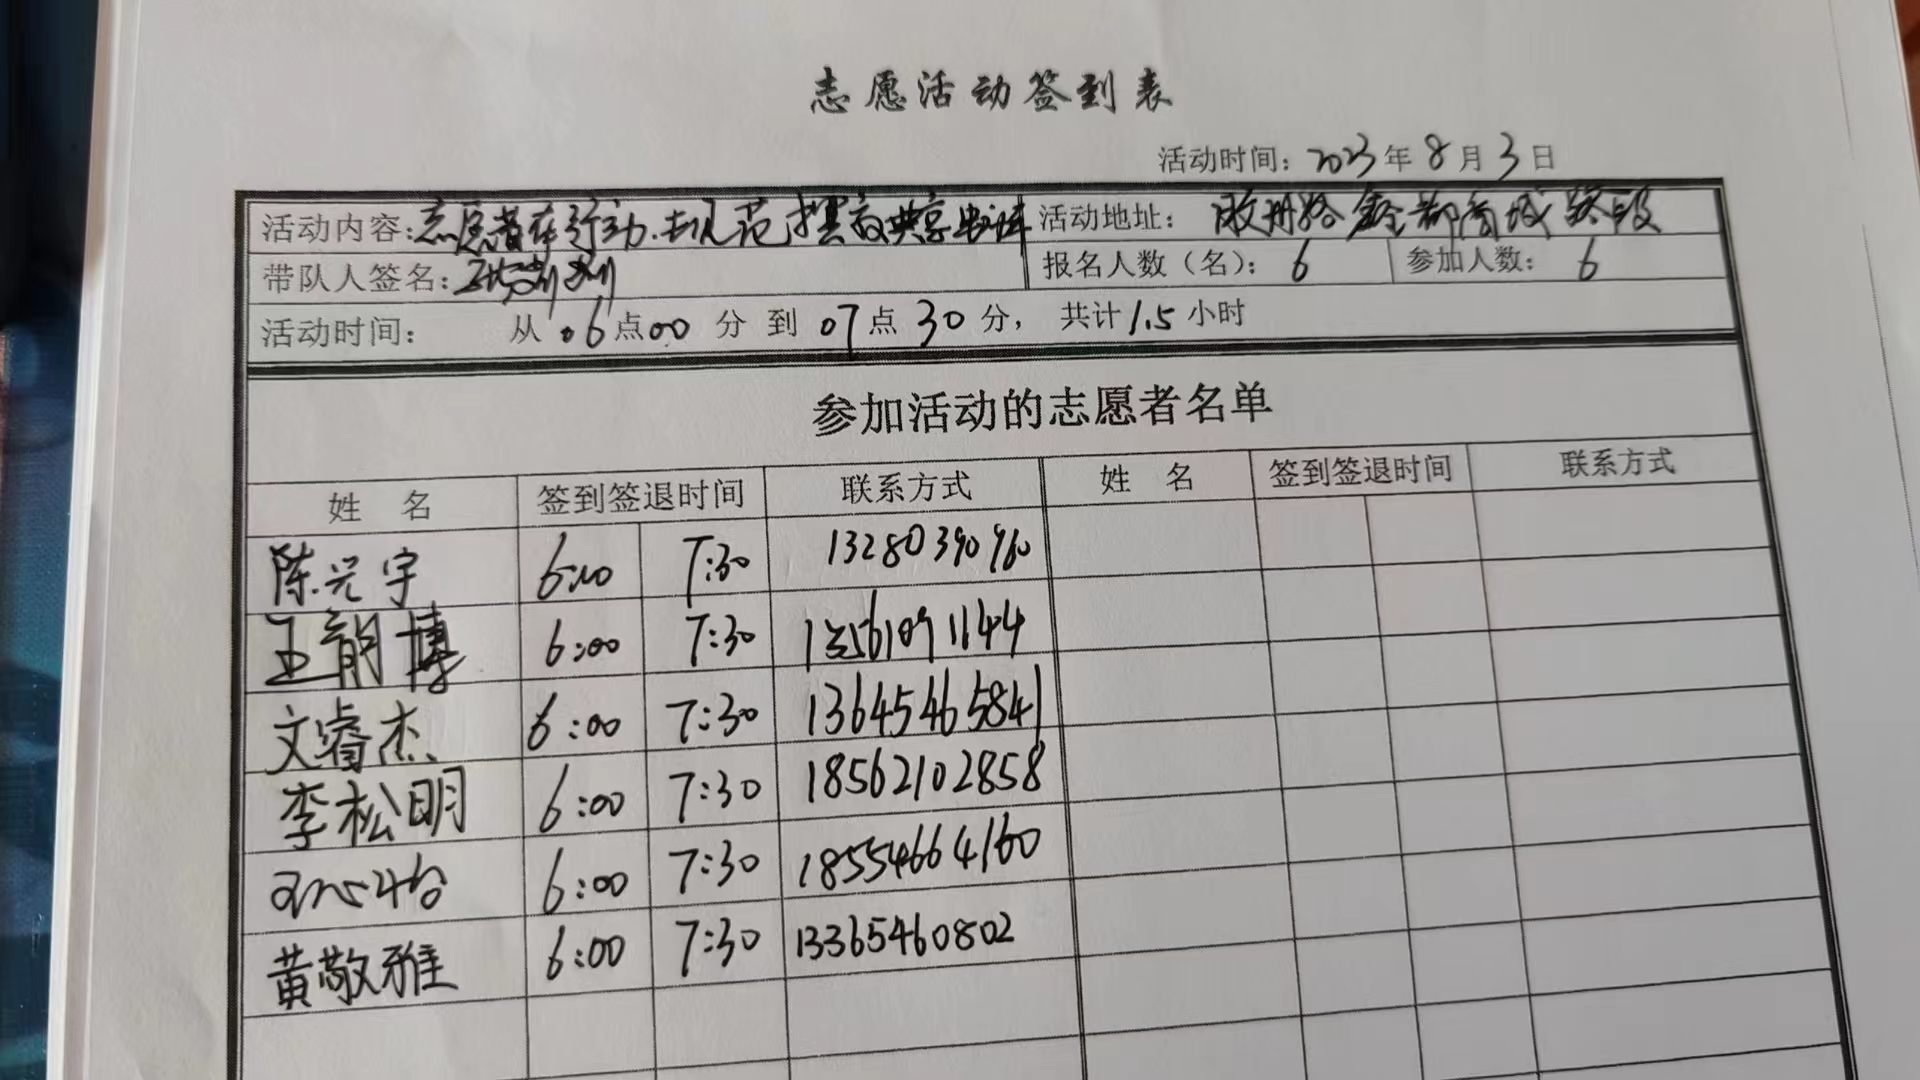 志愿活动签到表
活动时间：2023年8月3日
活动内容：志愿者在行动.规范摆放共享单车 活动地址： 鑫都商城路段
带队人签名： 报名人数（名）：6 参加人数：6
活动时间： 从.06点00分到07点30分，共计1.5小时
参加活动的志愿者名单
姓 名 签到签退时间 联系方式 姓 名 签到签退时间 联系方式
陈兴宇 6:00 7:30
王韵博 6:00 7:30
文睿杰 6:00 7:30 13645465841
李松明 6:00 7:30 18562102858
6:00 7:30 18554664160
黄敬雅 6:00 7:30 13365460802